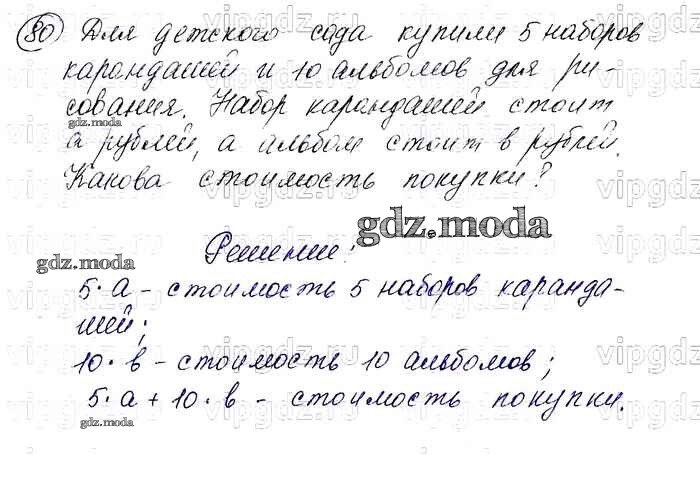 80 Для детского сада купили 5 наборов
карандашей и 10 альбомов для ри-
сования. Набор карандашей стоит
а рублей, а альбом стоит в рублей.
Какова стоимость покупки?
Решение:
5·а – стоимость 5 наборов каранда-
шей;
10·в – стоимость 10 альбомов;
5·а + 10·в – стоимость покупки.
gdz.moda
gdz.moda
gdz.moda
gdz.moda
vipgdz